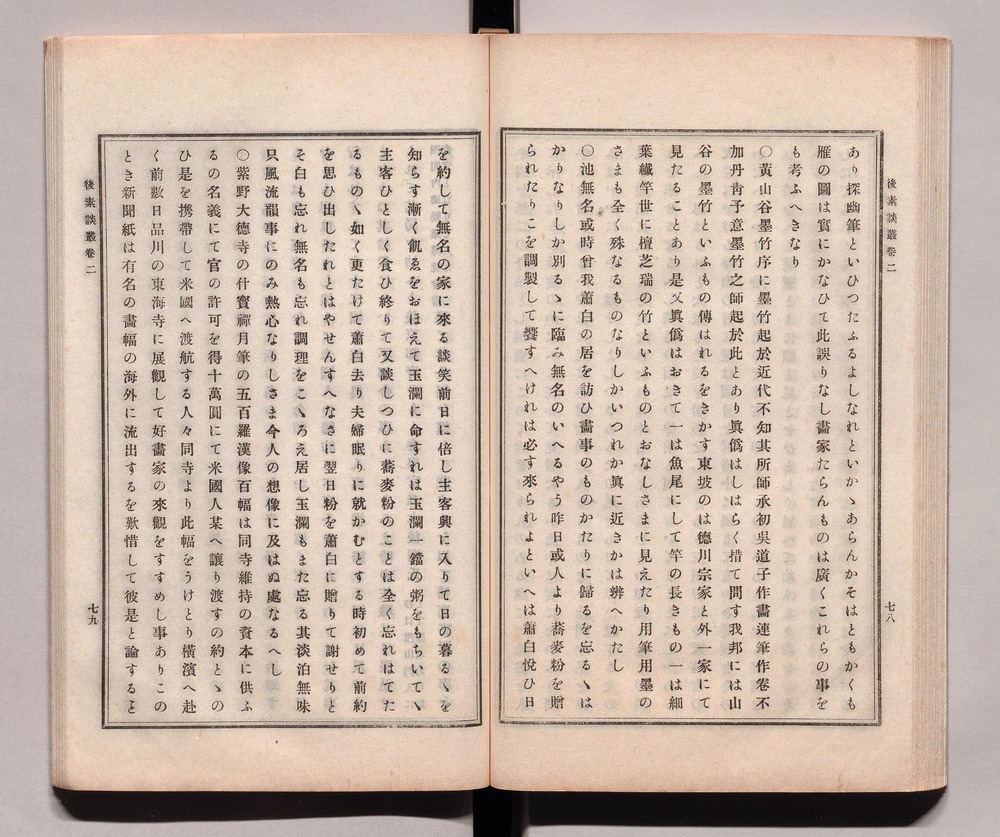 後素談叢卷二
七八
あり探幽筆といひつたふるよしなれといかゝあらんかそはともかくも
雁の圖は實にかなひて此誤りなし畫家たらんものは廣くこれらの事を
も考ふへきなり
〇黃山谷墨竹序に墨竹起於近代不知其所師承初吳道子作畫連筆作卷不
加丹靑予意墨竹之師起於此とあり眞僞はしはらく措て問す我邦には山
谷の墨竹といふもの傳はれるをきかす東坡のは德川宗家と外一家にて
見たることあり是又眞僞はおきて一は魚尾にして竿の長きもの一は細
葉纎竿世に檀芝瑞の竹といふものとおなしさまに見えたり用筆用墨の
さまも全く殊なるものなりしかいつれか眞に近きかは辨へかたし
〇池無名或時曾我蕭白の居を訪ひ畫事のものかたりに歸るを忘るゝは
かりなりしか別るゝに臨み無名のいへるやう昨日或人より蕎麥粉を贈
られたりこを調製して饗すへけれは必す來られよといへは蕭白悅ひ日
を約して無名の家に來る談笑前日に倍し主客興に入りて日の暮るゝを
知らす漸く飢ゑをおほえて玉瀾に命すれは玉瀾一鐺の粥をもちいてゝ
主客ひとしく食ひ終りて又談しつひに蕎麥粉のことは全く忘れはてた
るものゝ如く更たけて蕭白去り夫婦眠りに就かむとする時初めて前約
を思ひ出したれとはやせんすへなさに翌日粉を蕭白に贈りて謝せりと
そ白も忘れ無名も忘れ調理をこゝろえ居し玉瀾もまた忘る其淡泊無味
只風流韻事にのみ熱心なりしさま今人の想像に及はぬ處なるへし
〇紫野大德寺の什寶禪月筆の五百羅漢像百幅は同寺維持の資本に供ふ
るの名義にて官の許可を得十萬圓にて米國人某へ讓り渡すの約とゝの
ひ是を携帶して米國へ渡航する人々同寺より此幅をうけとり橫濱へ赴
く前數日品川の東海寺に展觀して好畫家の來觀をすすめし事ありこの
とき新聞紙は有名の畫幅の海外に流出するを歎惜して彼是と論するこ
後素談叢卷二
七九